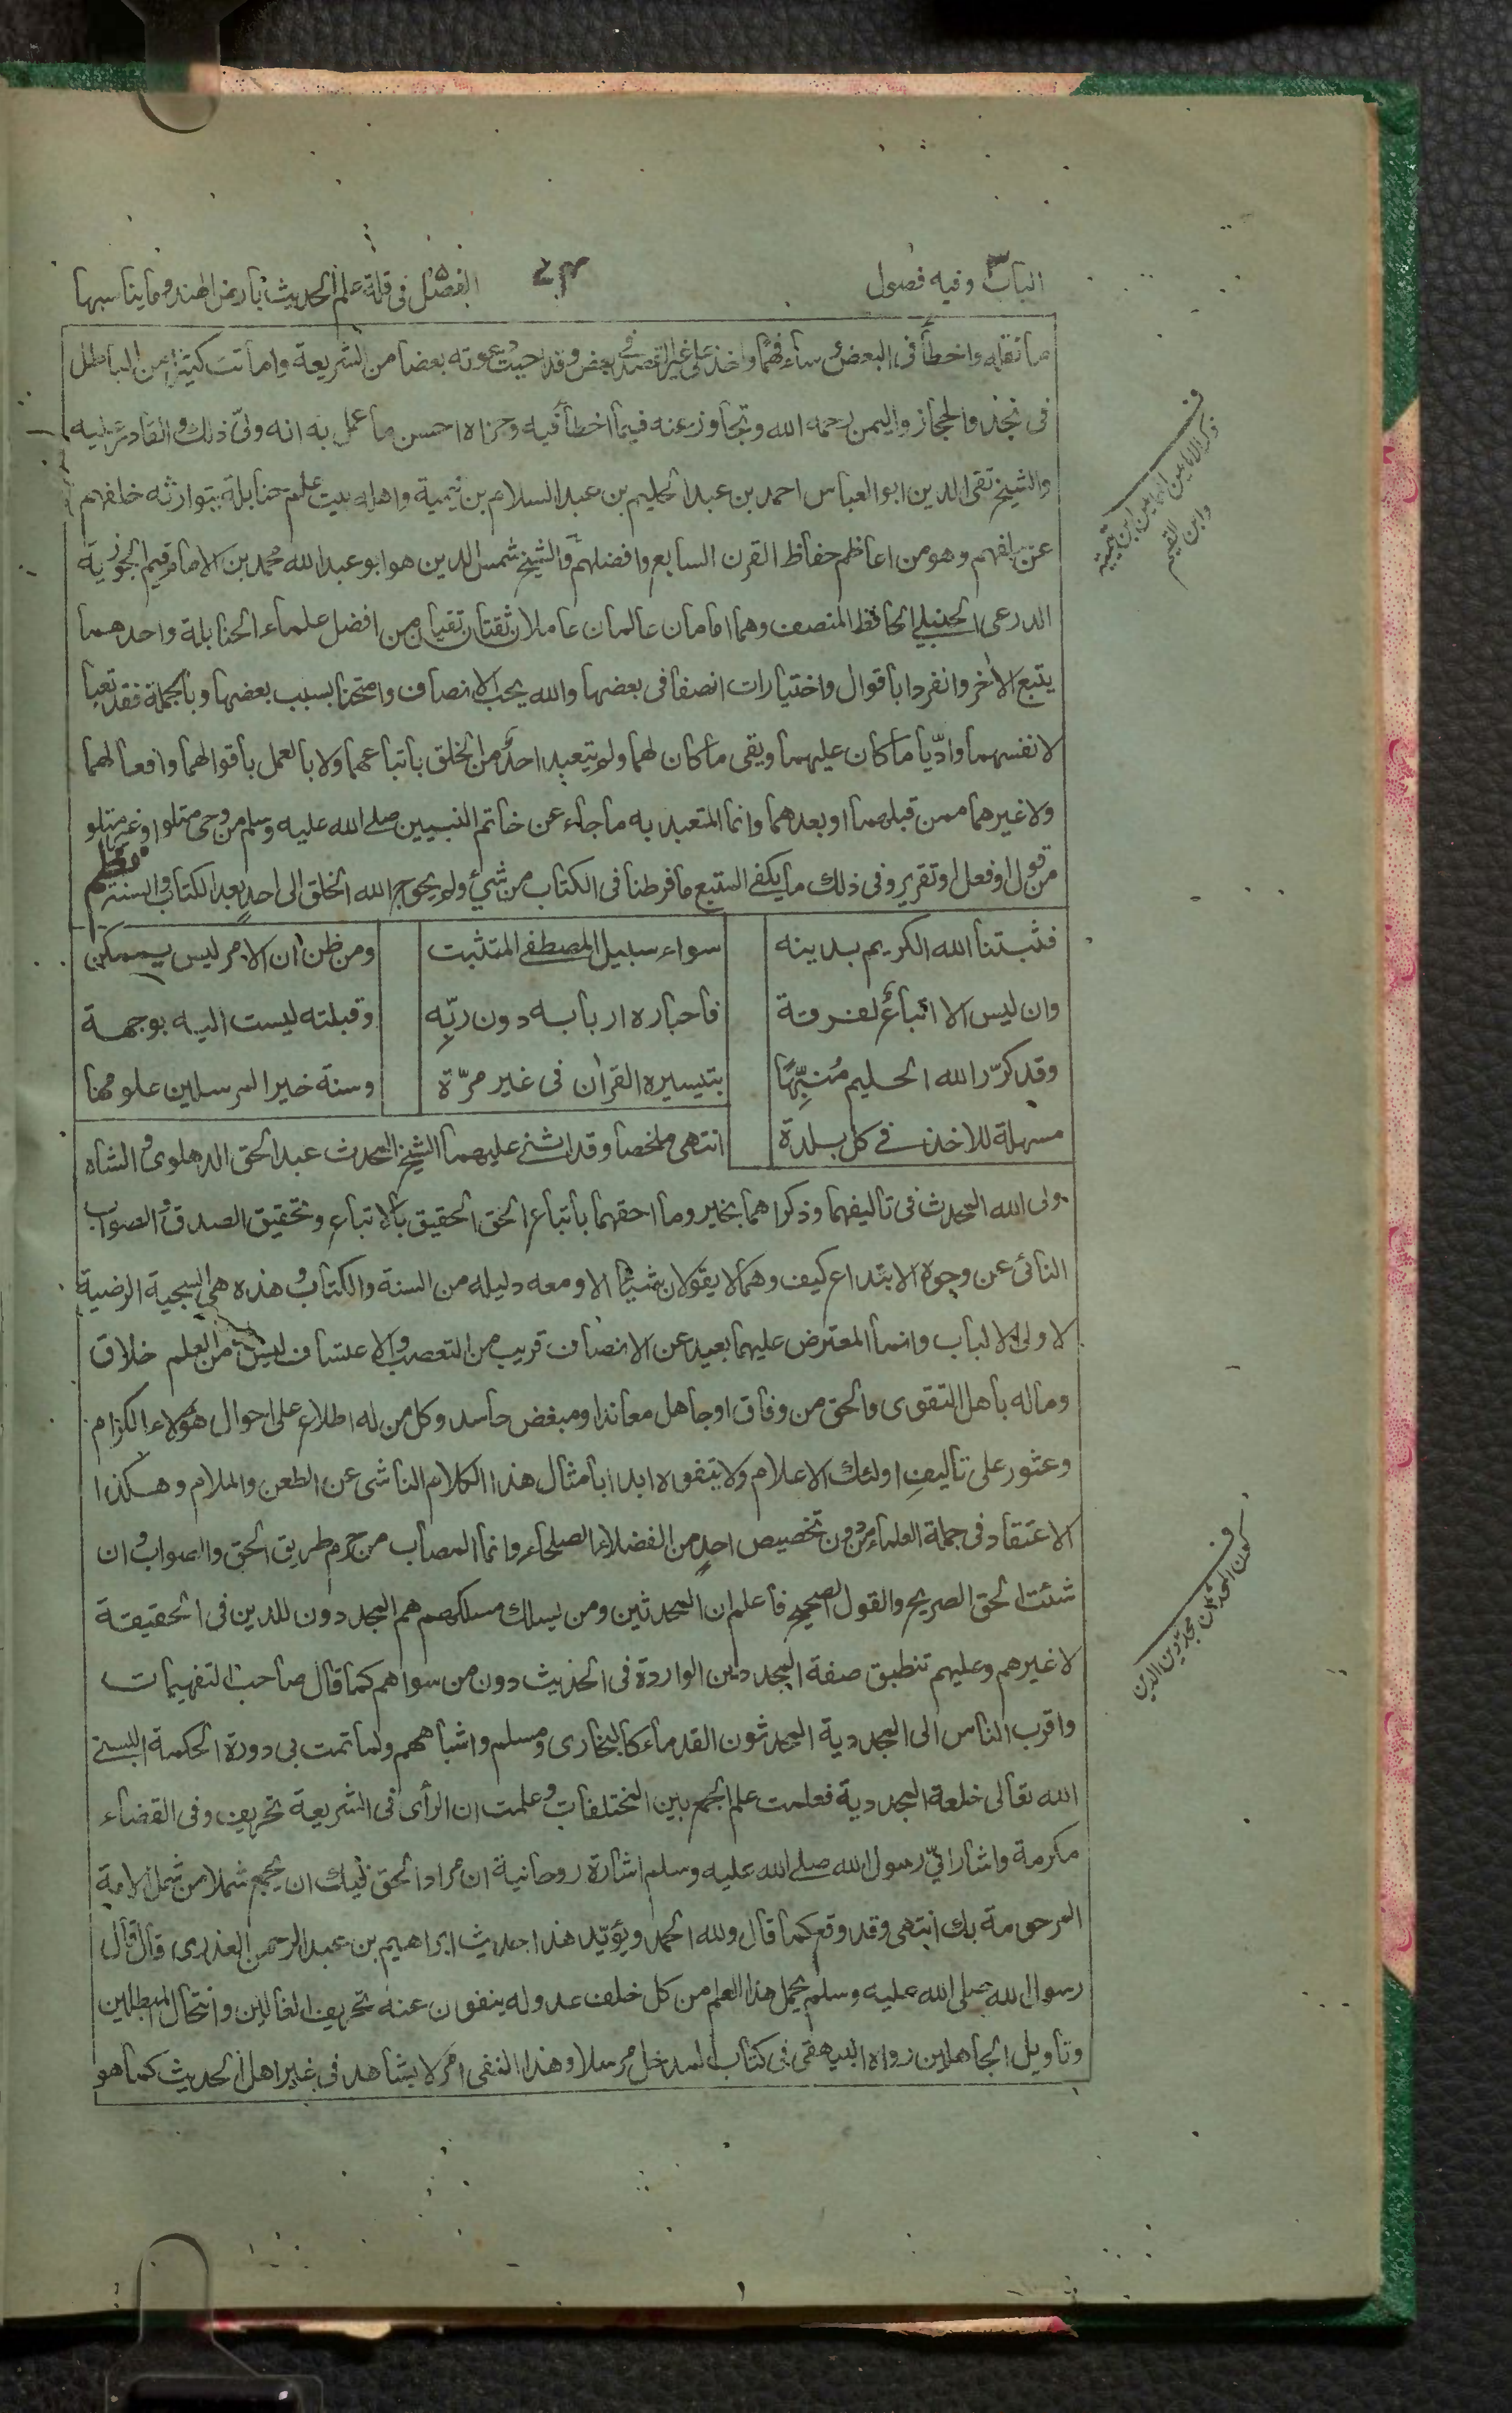 الباب ٣ وفيه فصول
٧٣
الفصل ٥ فى قلة علم الحديث بأرض الهند وما يناسبها
ما نقله واخطأ فى البعض ساء فهمًا واخذ على غير القصد فى بعض وقد احييت بدعوته بعضا من الشريعة واماتت كثيرا من الباطل
فى نجد والحجاز واليمن رحمه الله وتجاوز عنه فيما اخطأ فيه وجزاه احسن ما عمل به انه ولىّ ذلك والقادر عليه
والشيخ تقى الدين ابو العباس احمد بن عبد الحليم بن عبد السلام بن تيمية واهله بيت علم حنابلة يتوارثه خلفهم
عن سلفهم وهو من اعاظم حفاظ القرن السابع وافضلهم والشيخ شمس الدين هو ابو عبد الله محمد بن الامام قيم الجوزية
الدرعى الحنبلي الحافظ المنصف وهما امامان عالمان عاملان ثقتان تقيان من افضل علماء الحنابلة واحدهما
يتبع الأخر وانفردا بأقوال واختيارات انصفا فى بعضها والله يحب الانصاف وامتحنا بسبب بعضها وبالجملة فقد تعبا
لانفسهما وادّيا ما كان عليهما وبقى ما كان لهما ولم يتعبد احدٌ من الخلق باتباعهما ولا بالعمل بأقوالهما وافعالهما
ولا غيرهما ممن قبلهما او بعدهما وانما المتعبد به ما جاء عن خاتم النبيين صلے الله عليه وسلم من وحى متلو او غير متلو
من قول او فعل او تقرير وفى ذلك ما يكفى المتبع ما فرطنا فى الكتاب من شئ ولم يحوج الله الخلق الى احدٍ بعد الكتاب والسنة نظم
فثبتنا الله الكريم بدينه سواء سبيل المصطفے المتثبت ومن ظن ان الامر ليس بممكن
وان ليس الا اتباعٌ لفرقة فأحباره اربابه دون ربّه وقبلته ليست اليه بوجهة
وقد كرّر الله الحليم مُنبّهًا بتيسيره القرأن فى غير مرّة وسنة خير المرسلين علومها
مسهلة للاخذ فے كل بلدة انتهى ملخصا وقد اثنى عليهما الشيخ المحدث عبد الحق الدهلوى والشاه
ولى الله المحدث فى تأليفهما وذكراهما بخير وما احقهما باتباع الحق الحقيق بالاتباع وتحقيق الصدق والصواب
النائى عن وجوه الابتداع كيف وهما لا يقولان بشئ الا ومعه دليله من السنة والكتاب وهذه هى السجية الرضية
لاولى الالباب وانما المعترض عليهما بعيد عن الانصاف قريب من التعصب والاعتساف ليس من العلم خلاق
وماله بأهل التقوى والحق من وفاق او جاهل معاند او مبغض حاسد وكل من له اطلاع على احوال هؤلاء الكرام
وعثور على تأليفِ اولئك الاعلام ولا يتفوه ابدا بأمثال هذا الكلام الناشى عن الطعن والملام وهكذا
الاعتقاد فى جملة العلماء من دون تخصيص احدٍ من الفضلاء الصلحاء وانما المصاب من حرم طريق الحق والصواب وان
شئت الحق الصريح والقول الصحيح فأعلم ان المحدثين ومن يسلك مسلكهم هم المجددون للدين فى الحقيقة
لا غيرهم وعليهم تنطبق صفة المجددين الواردة فى الحديث دون من سواهم كما قال صاحب التفهيمات
واقرب الناس الى المجددية المحدثون القدماء كالبخارى ومسلم واشباههم ولما تمت بى دورة الحكمة البسنے
الله تعالى خلعة المجددية فعلمت علم الجمع بين المختلفات وعلمت ان الرأى فى الشريعة تحريف وفى القضاء
مكرمة واشار الىّ رسول الله صلے الله عليه وسلم اشارة روحانية ان مراد الحق فيك ان يجمع شملا من شمل الامة
المرحومة بك انتهى وقد وقع كما قال ولله الحمد ويؤيّد هذا حديث ابراهيم بن عبد الرحمن العذرى قال قال
رسول الله صلى الله عليه وسلم يحمل هذا العلم من كل خلف عدوله ينفون عنه تحريف الغالين وانتحال المبطلين
وتأويل الجاهلين رواه البيهقى فى كتاب المدخل مرسلا وهذا النفى امر لا يشاهد فى غير اهل الحديث كما هو
ف
ذكر الامامين الهمامين ابن تيمية
وابن القيم
ف
كون المحدثين مجددين الدين